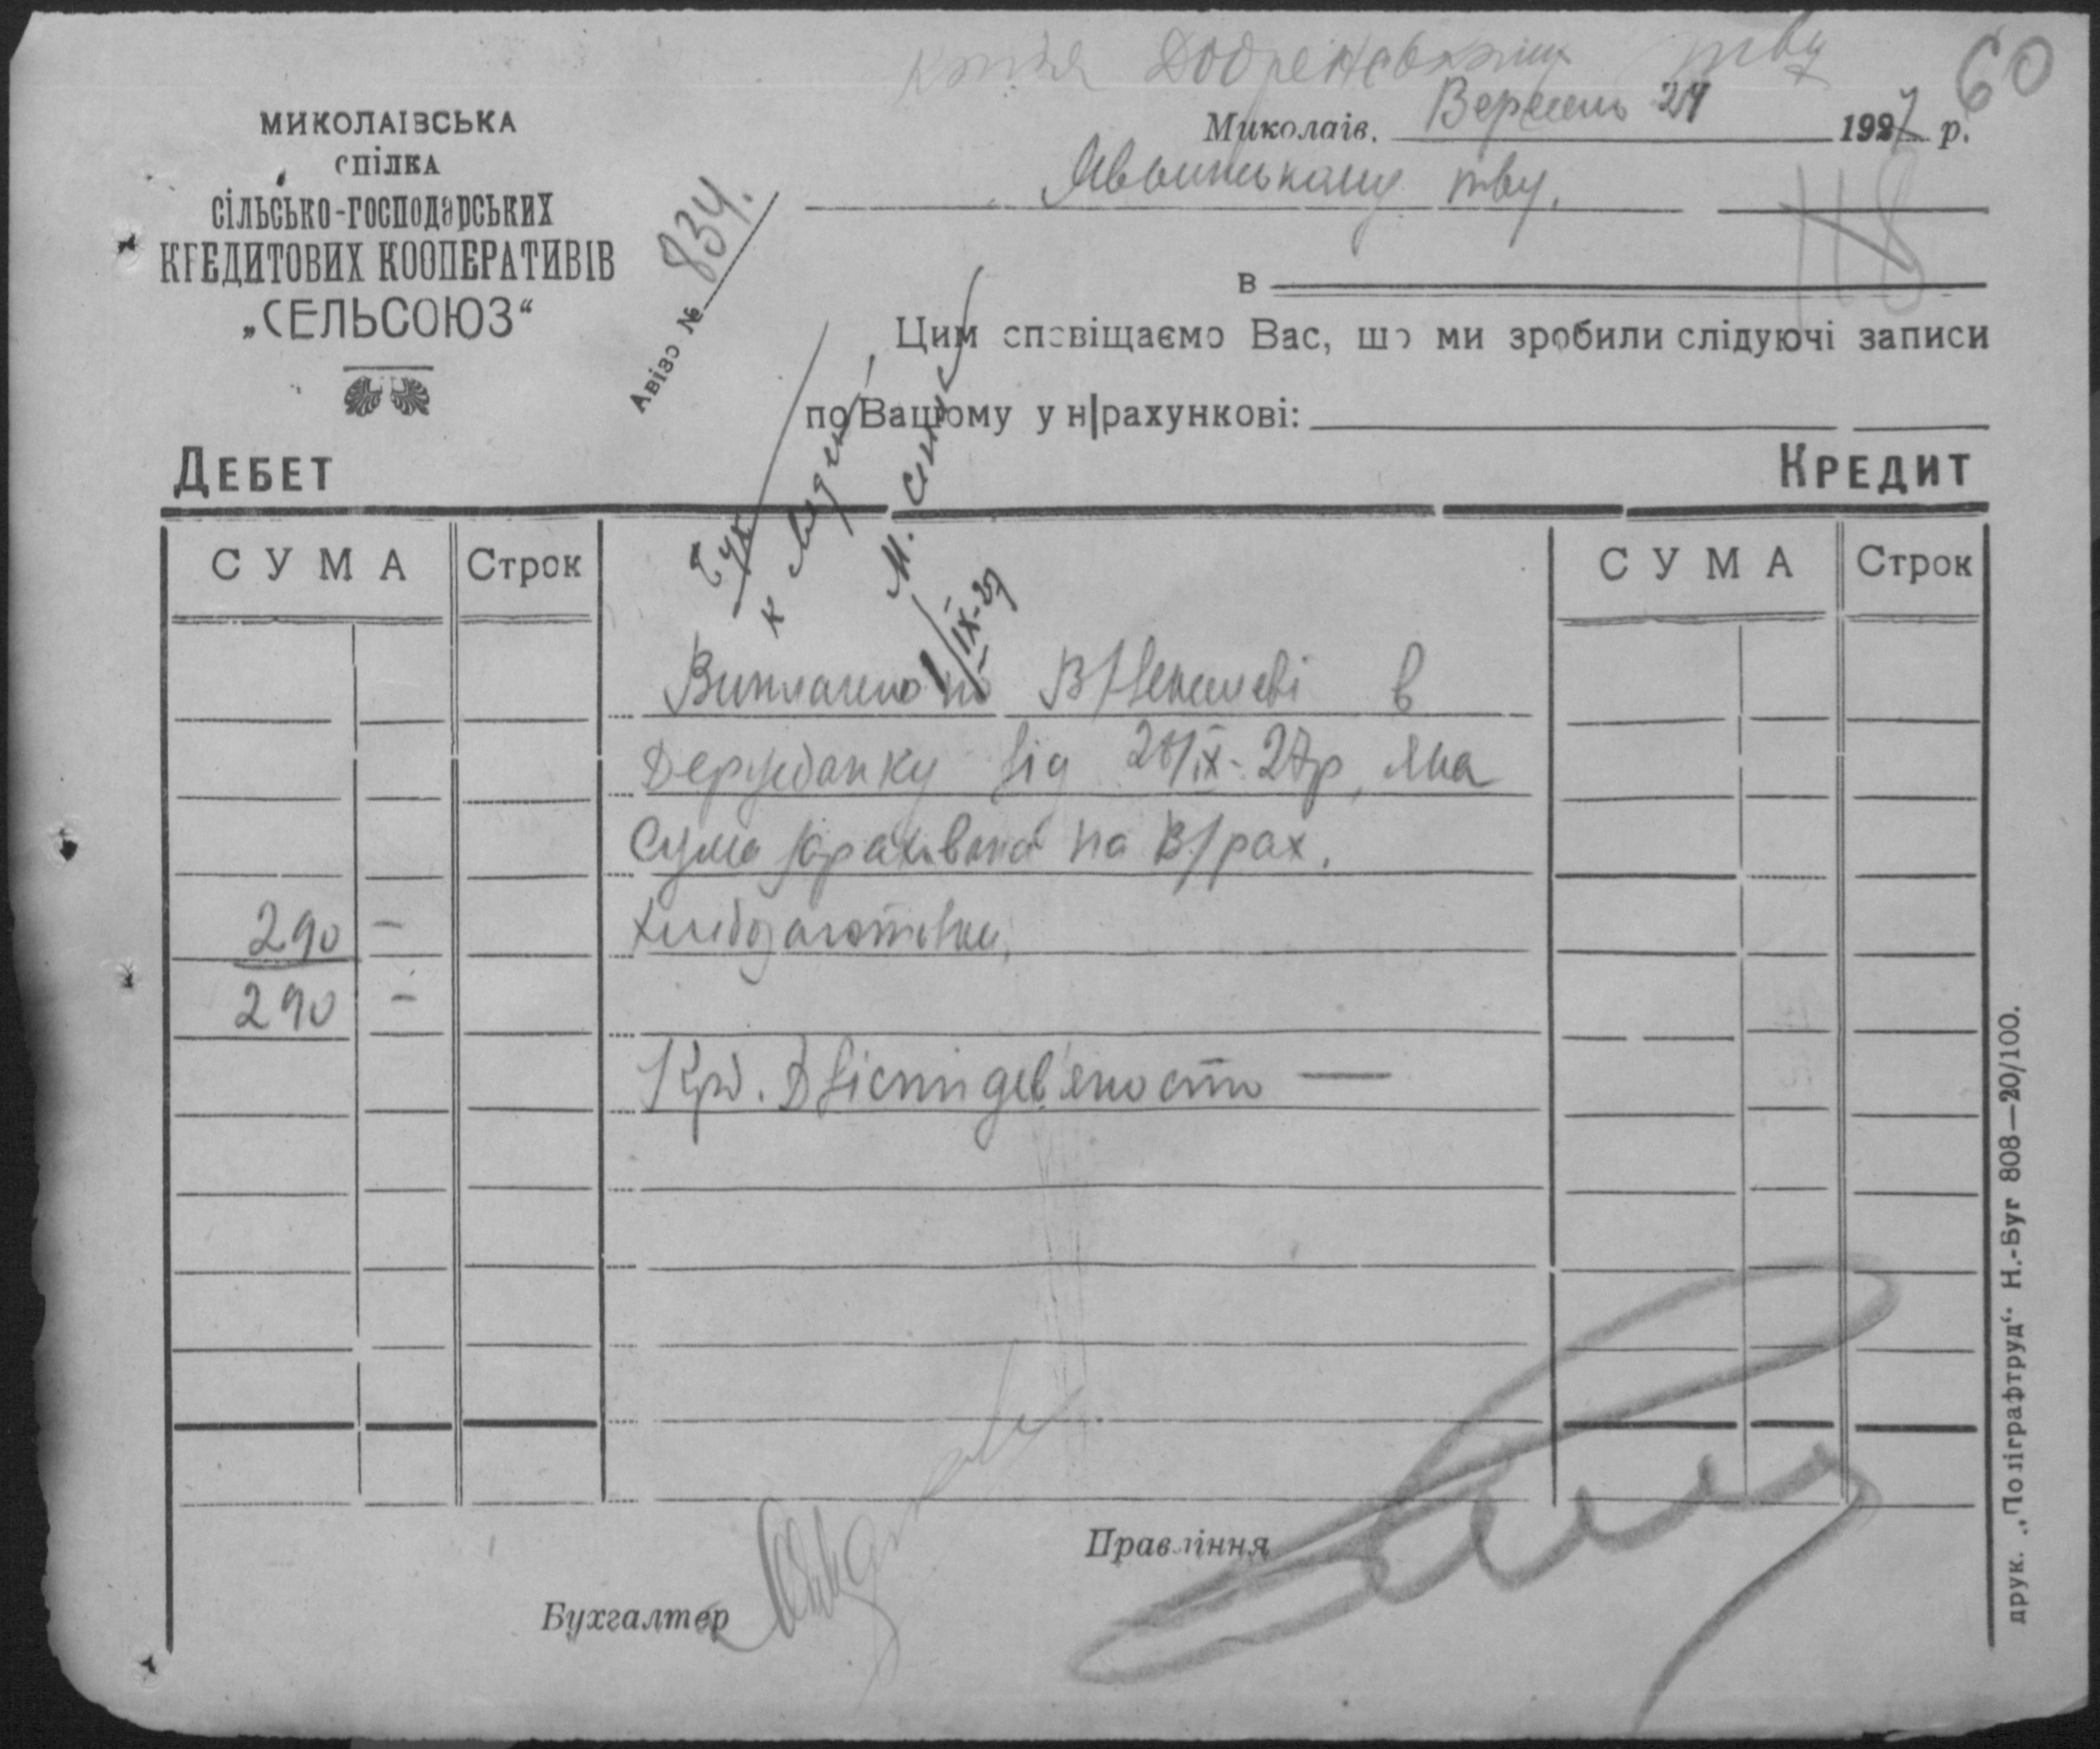 60
МИКОЛАІВСЬКА
СПІЛКА
СІЛЬСЬКО-ГОСПОДАРСЬКИХ
КРЕДИТОВИХ КООПЕРАТИВІВ
„СЕЛЬСОЮЗ“
Авізо № 834.
тву
Миколаів. Вересень 24 1927 р.
тву.
118
в
Цим сповіщаємо Вас, що ми зробили слідуючі записи
по Вашому у н|рахункові:
ДЕБЕТ КРЕДИТ
СУМА Строк СУМА Строк
к
М.
IX-27
Виплачено по В/ в
Держбанку від IX-27р, яка
Сума зарахована на В/рах.
290 - хлібозаготівки,
290 -
Крб. Двісті дев'яносто —
Правління
Бухгалтер
друк. „Поліграфтруд“ Н.-Буг 808—20/100.